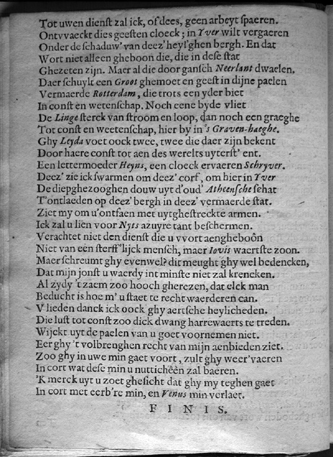 Tot uwen dienst zal ick, of dees, geen arbeyt spaeren.
Ontwaeckt dies geesten cloeck; in Yver wilt vergaeren
Onder de schaduw' van deez' heyl'ghen bergh. En dat
Wort niet alleen gheboon die, die in dese stat
Ghezeten zijn. Maer al die door gansch Neerlant dwaelen.
Daer schuylt een Groot ghemoet en geest in dijne paelen
Vermaerde Rotterdam, die trots een yder biet
In const en wetenschap. Noch eene byde vliet
De Linge sterck van stroom en loop, dan noch een graeghe
Tot const en weetenschap, hier by in 's Graven-haeghe.
Ghy Leyda voet oock twee, twee die daer zijn bekent
Door haere const tot aen des werelts uyterst' ent.
Een lettermoeder Heyns, een cloeck ervaeren Schryver.
Deez' zie ick swarmen om deez' corf, om hier in Yver
De diepghezooghen douw uyt d'oud' Atheensche schat
T'ontlaeden op deez' bergh in deez' vermaerde stat.
Ziet my om u'ontfaen met uytghestreckte armen.
Ick zal u lien voor Nyts azuyre tant beschermen.
Verachtet niet den dienst die u wort aengheboôn
Niet van een sterff'lijck mensch, maer Iovis waertste zoon.
Maer schreumt ghy evenwel? dit meught ghy wel bedencken,
Dat mijn jonst u waerdy int minste niet zal krencken.
Al zydy 't zaem zoo hooch gherezen, dat elck man
Beducht is hoe m' u staet te recht waerderen can.
V lieden danck ick oock ghy aertsche heylicheden.
Die lust tot const zoo dick dwang harrewaerts te treden.
Wijckt uyt de paelen van u goet voornemen niet.
Eer ghy 't volbrenghen recht van mijn aenbieden ziet.
Zoo ghy in uwe min gaet voort, zult ghy weer'vaeren
In cort wat dese min u nutticheên zal baeren.
'K merck uyt u zoet ghesicht dat ghy my teghen gaet
In cort met eerb're min, en Venus min verlaet.
FINIS.